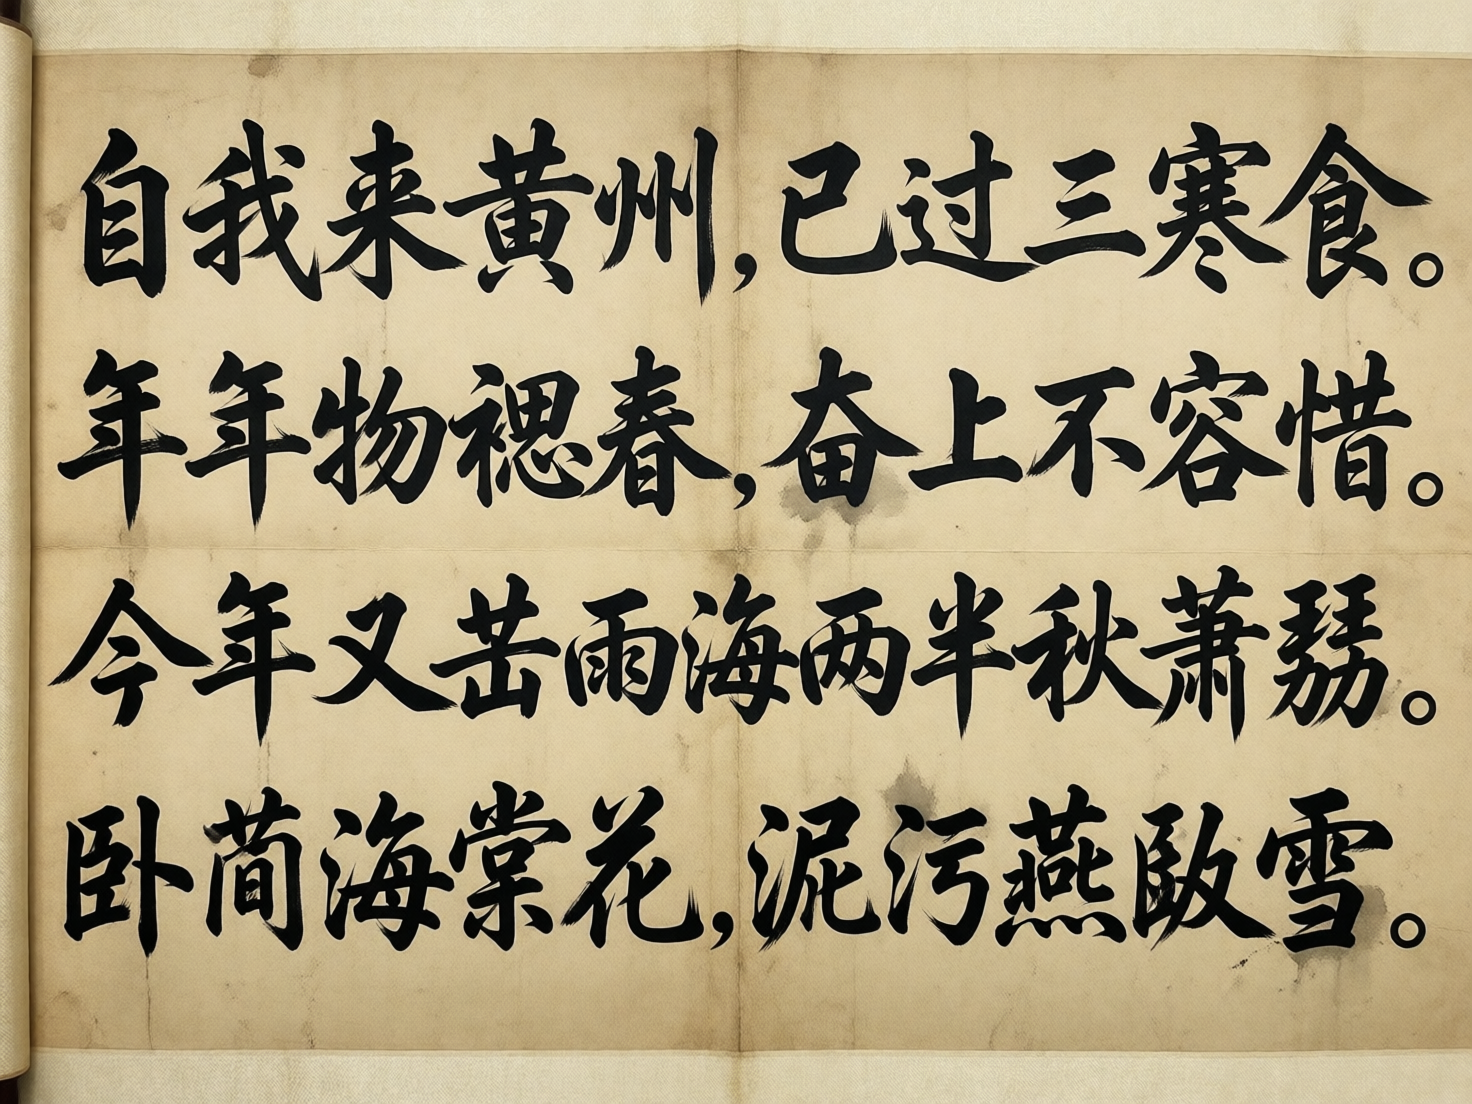 自我来黄州,已过三寒食。
年年物春,奋上不容惜。
今年又雨海两半秋萧。
卧海棠花,泥污燕雪。